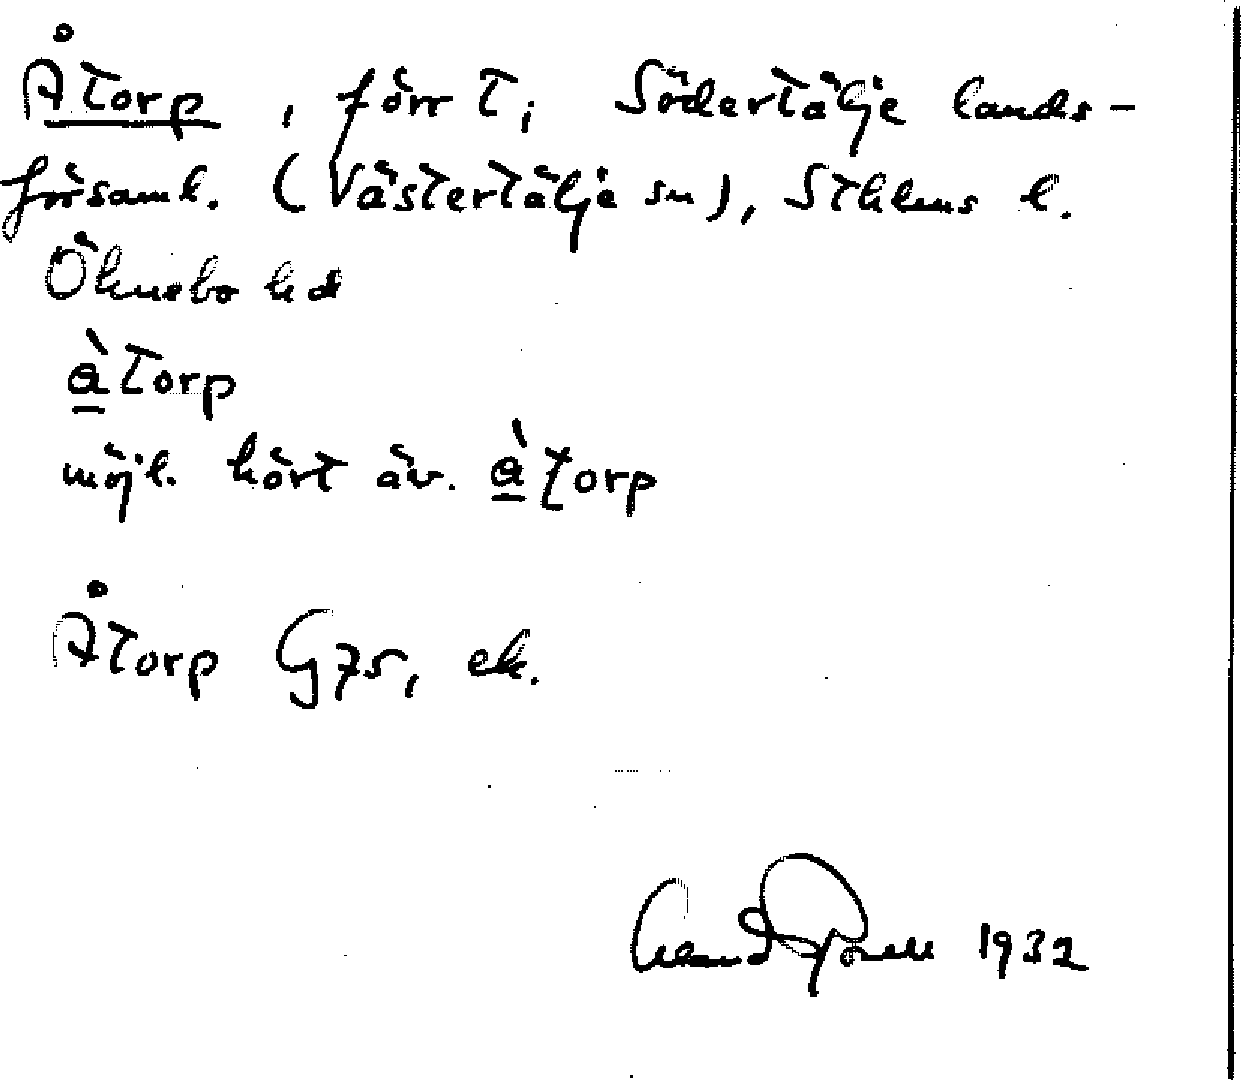 Åtorp, förr t, Södertälje lands-
församl. (Västertälje sn), Sthlms l.
Öknebo hd
àtorp
möjl. hört äv. àtorp
Åtorp G75, ek.
1932